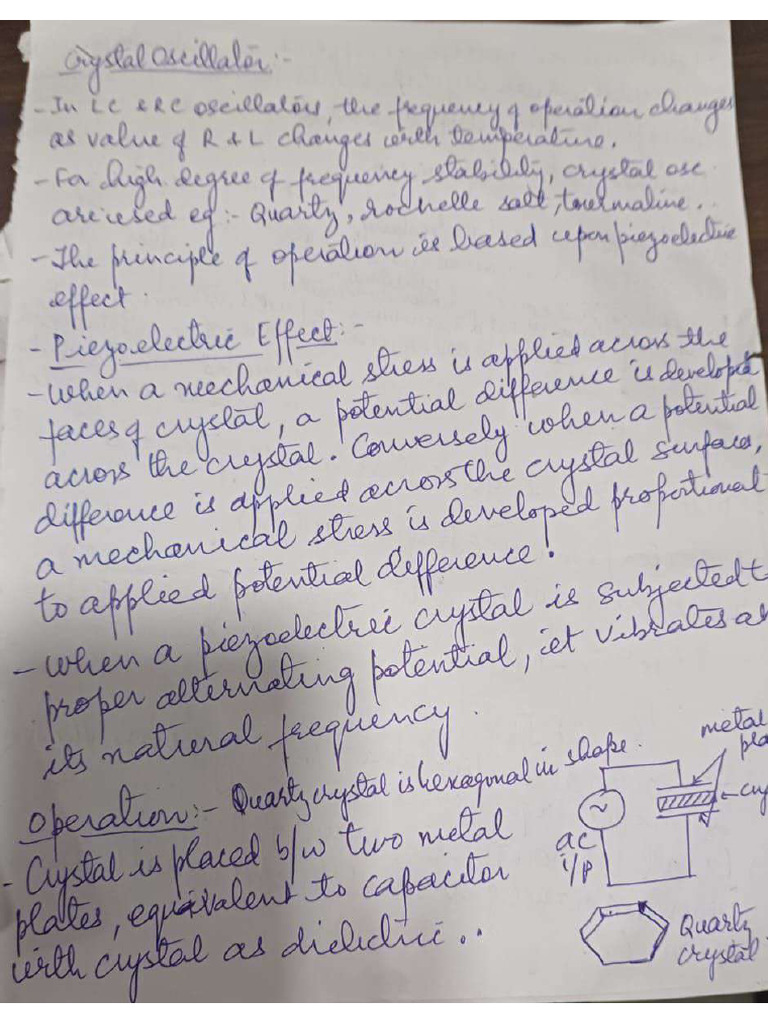 Crystal Oscillator:-
- In LC & RC oscillators, the frequency of operation changes
as value of R & L changes with temperature.
- For high degree of frequency stability, crystal osc
are used eg:- Quartz, rochelle salt, tourmaline.
- The principle of operation is based upon piezoelectric
effect.
- Piezoelectric Effect:-
- When a mechanical stress is applied across the
faces of crystal, a potential difference is developed
across the crystal. Conversely when a potential
difference is applied across the crystal surface,
a mechanical stress is developed proportional
to applied potential difference.
- When a piezoelectric crystal is subjected t
proper alternating potential, it vibrates a
its natural frequency.
Operation:- Quartz crystal is hexagonal in shape.
- Crystal is placed b/w two metal
plates, equivalent to capacitor
with crystal as dielectric..
metal
pla
cry
ac
i/p
Quartz
crystal